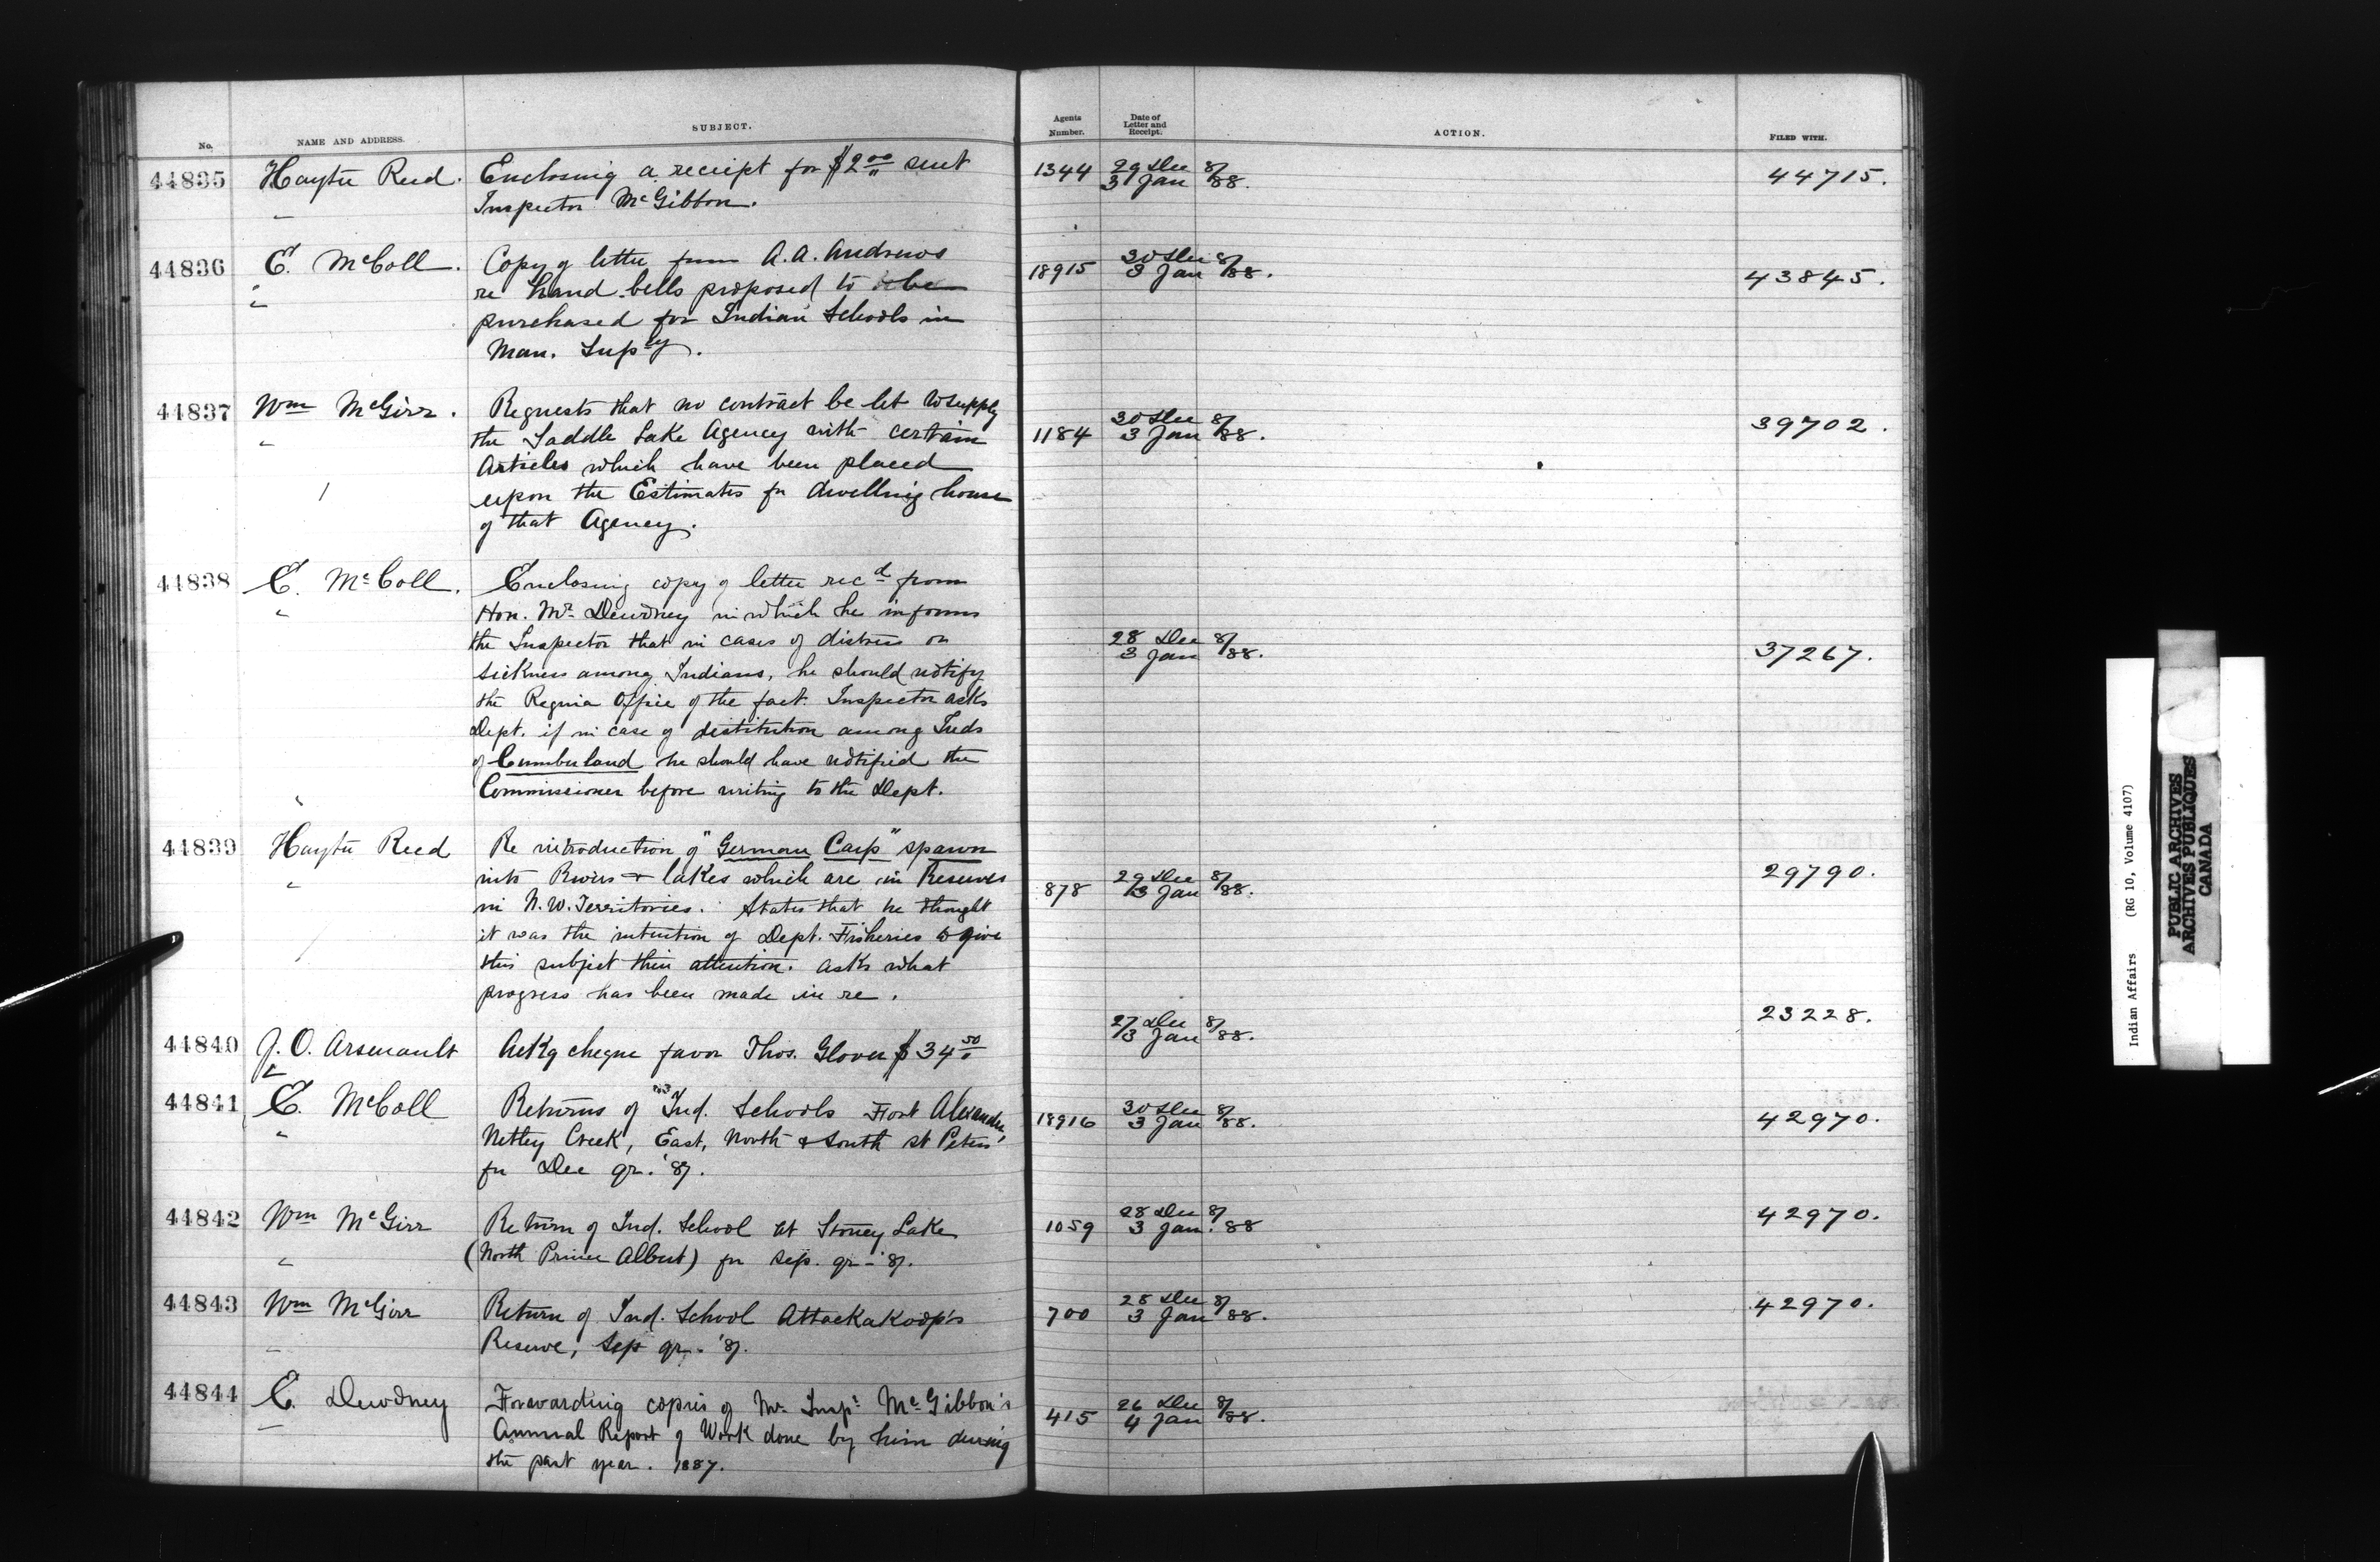 No. NAME AND ADDRESS. SUBJECT. Agents Number. Date of Letter and Receipt. ACTION. FILED WITH.
44835 Hayter Reed. Enclosing a receipt for $2.00 sent 1344 29 Dec 87 44715.
Inspector McGibbon. 31 Jan /88.
44836 E. McColl. Copy of letter from A. A. Andrews 18915 30 Dec 87 43845.
re hand bells proposed to be 3 Jan /88.
purchased for Indian Schools in
Man. Supcy.
44837 Wm McGirr. Requests that no contract be let to supply 30 Dec 87 39702.
the Saddle Lake Agency with certain 1184 3 Jan /88.
Articles which have been placed
upon the Estimates for dwelling house
of that Agency.
44838 E. McColl. Enclosing copy of letter recd from
Hon. Mr. Dewdney in which he informs
the Inspector that in cases of distress or 28 Dec 87
sickness among Indians, he should notify 3 Jan /88. 37267.
the Regina Office of the fact. Inspector asks
Dept. if in case of distitution among Inds
of Cumberland he should have notified the
Commissioner before writing to the Dept.
44839 Hayter Reed Re introduction of "German Carp" spawn
into Rivers + lakes which are in Reserves 878 29 Dec 87 29790.
in N. W. Territories. States that he thought /3 Jan /88.
it was the intention of Dept. Fisheries to give
this subject their attention. asks what
progress has been made in re.
44840 J. O. Arsenault Ackg cheque favor Thos. Glover $34.50 27 Dec 87 23228.
/3 Jan /88.
44841 E. McColl Returns of Ind. Schools Fort Alexander, 18916 30 Dec 87 42970.
Netley Creek, East, North & South St Peters' 3 Jan /88.
for Dec qr. '87.
44842 Wm McGirr Return of Ind. School at Stoney Lake 1059 28 Dec 87 42970.
(North Prince Albert) for Sep. qr - '87. 3 Jan. 88
44843 Wm McGirr Return of Ind. School Attackakoop's 700 28 Dec 87 42970.
Reserve, Sep qr. '87. 3 Jan 88.
44844 E. Dewdney Forwarding copies of Mr. Inspr McGibbon's 415 26 Dec 87
Annual Report of Work done by him during 4 Jan /88.
the past year. 1887.
Indian Affairs (RG 10, Volume 4107)
PUBLIC ARCHIVES
ARCHIVES PUBLIQUES
CANADA